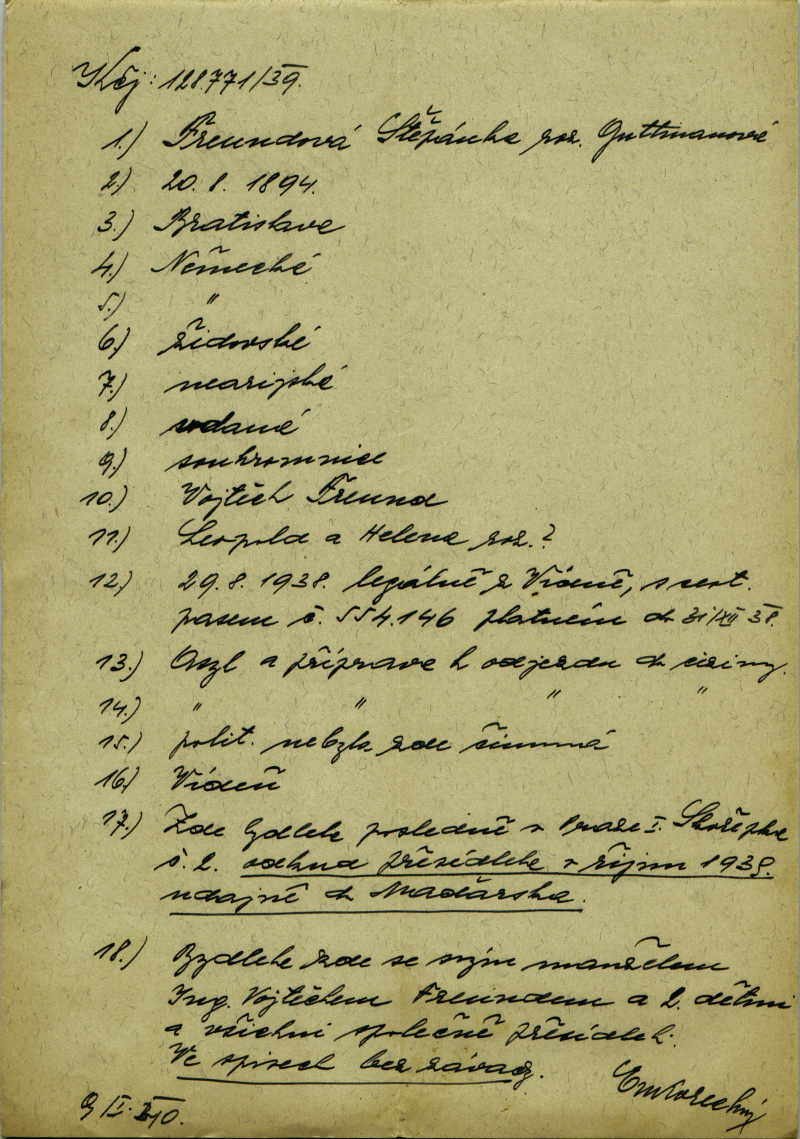 128.771/39.
1.) Freundová Štěpánka roz. Guttmanová
2.) 20. 8. 1894.
3.) Bratislava
4.) Německé
5.) "
6.) židovské
7.) nearijské
8.) vdaná
9.) soukromnice
10.) Vojtěch Freund
11.) Leopold a Helena roz. ?
12.) 29. 8. 1938. legálně z Vídně, s cest.
pasem č. 554.146 platném do 31/XII 38.
13.) Azyl a příprava k odjezdu do ciziny.
14.) " " " "
15.) polit. nebyla zde činnná
16.) Vídeň
17.) Zde bydlela posledně v Praze I. Skořepka
č. 2. odkud přesídlela v říjnu 1939.
údajně do Maďarska.
18.) Bydlela zde se svým manželem
Ing. Vojtěchem Freundem a 2. dětmi
a všichni společně přesídleli.
Ve spisech bez závady.
9 II. 40.